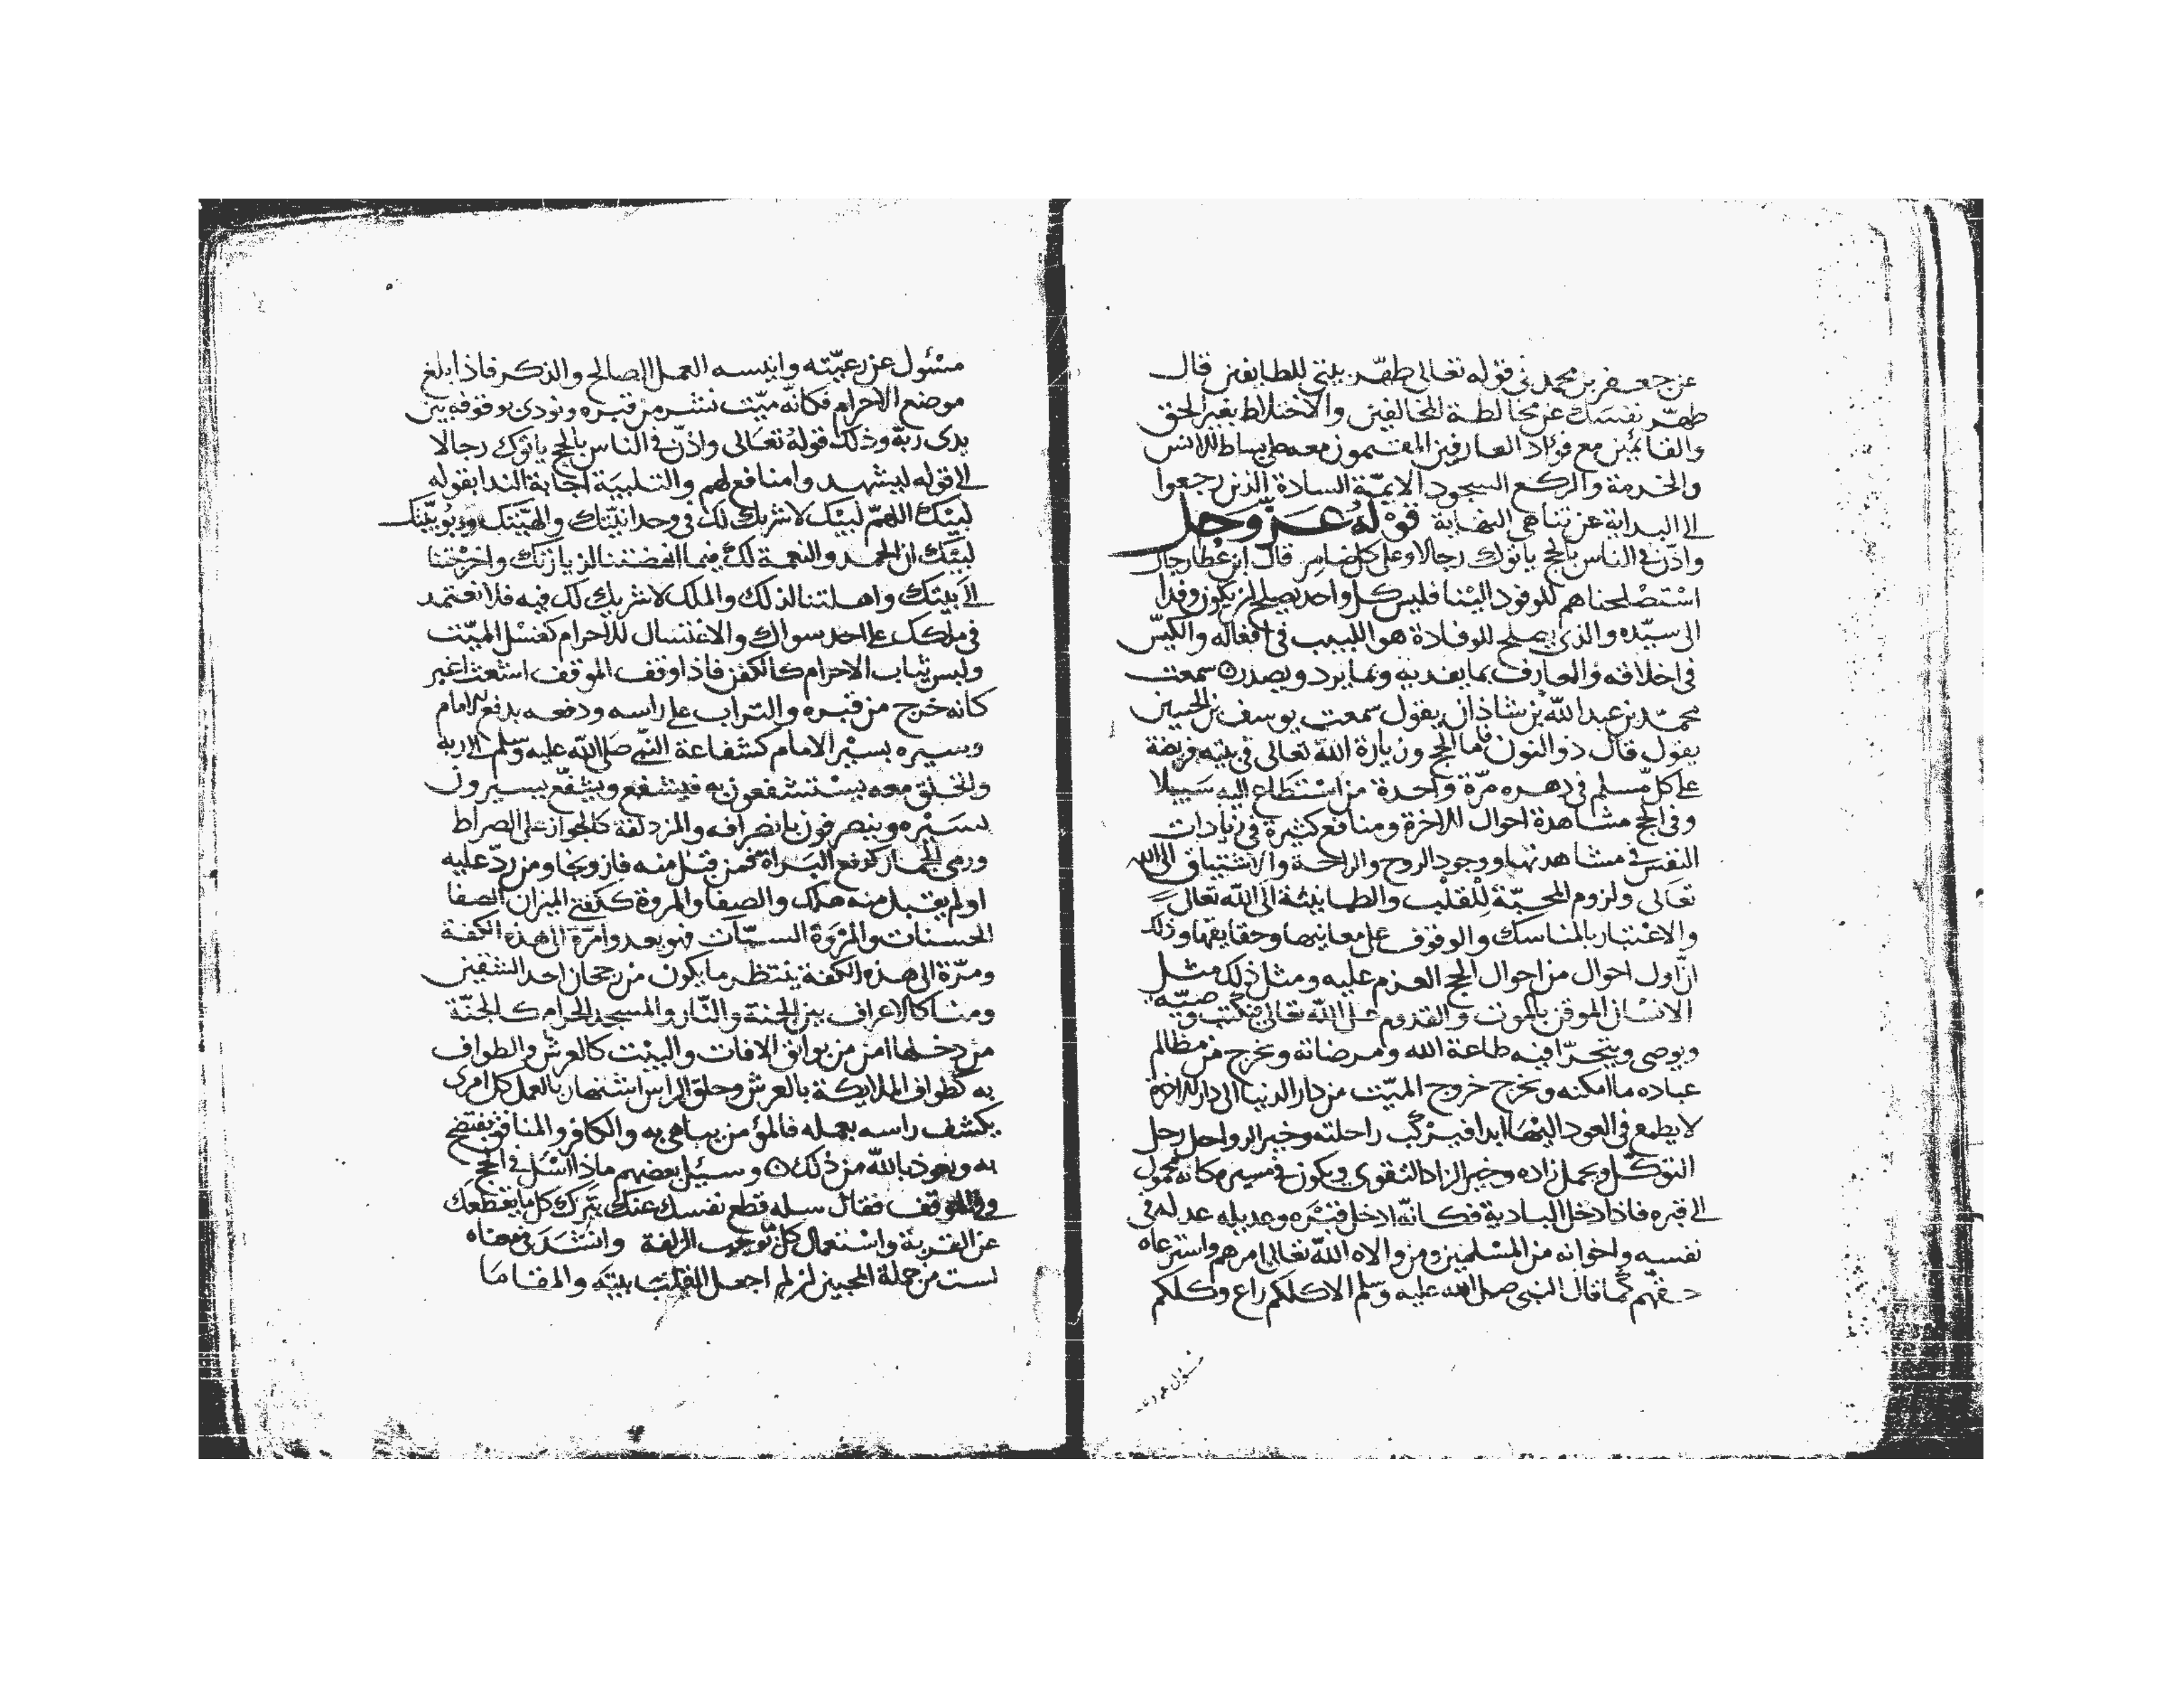 عن جعفر بن محمد في قوله تعالى طهّر بيتي للطايفين قال
طهّر نفسك عن مخالطة المخالفين والاختلاط بغير الحق
والقائمين مع فؤاد العارفين المقيمون معه على بساط الانس
والخدمة والركع السجود الايمّة السادة الذين رجعوا
الى البداية عن تناهي النهاية قوله عزّ وجل
واذّن في الناس بالحج ياتوك رجالا وعلى كل ضامر قال ابن عطا رجال
استصلحناهم للوفود الينا فليس كل واحد يصلح لن يكون وفدا
الى سيّده والذي يصلح للوفادة هو اللبيب في افعاله والكيّس
في اخلاقه والعارف بما يفد به وبما يرد ويصدر سمعت
محمد بن عبد الله بن شاذان يقول سمعت يوسف بن الحسين
يقول قال ذو النون فاما الحج وزيارة الله تعالى في بيته فريضة
على كل مسلم في دهره مرّة واحدة من استطاع اليه سبيلا
وفي الحج مشاهدة احوال الاخرة ومنافع كثيرة في زيادات
النفس في مشاهدتها ووجود الروح والراحة والاشتياق الى الله
تعالى ولزوم المحبّة للقلب والطمانينة الى الله تعالى
والاعتبار بالمناسك والوقوف على معانيها وحقايقها وذلك
انّ اول احوال من احوال الحج العزم عليه ومثل ذلك مثل
الانسان الموقن بالموت والقدوم على الله تعالى فيكتب وصيّه
ويوصي ويتحرّا فيه طاعة الله ومرضاته ويخرج من مظالم
عباده ما امكنه ويخرج خروج الميّت من دار الدنيا الى دار الاخرة
لا يطمع في العود اليها ابدا فيركب راحلته وخير الرواحل رحل
التوكل ويحمل زاده وخير الزاد التقوى ويكون في مسيره كانه محمول
الى قبره فاذا دخل البادية فكانّه ادخل قبره وعديله عدله في
نفسه واخوانه من المسلمين ومن والاه الله تعالى امرهم واسترعاه
حقهم كما قال النبي صلى الله عليه وسلم الا كلكم راع وكلكم
مسئول عن رعيته
مسئول عن رعيّته وانيسه العمل الصالح والذكر فاذا بلغ
موضع الاحرام فكانّه ميّت نشر من قبره ونودي بوقوفه بين
يدي ربّه وذلك قوله تعالى واذّن في الناس بالحج ياتوك رجالا
الى قوله ليشهدوا منافع لهم والتلبية اجابة الندا بقوله
لبيّك اللهمّ لبيّك لا شريك لك في وحدانيّتك والهيّتك وربوبيّتك
لبيّك ان الحمد والنعمة لك فيما انهضتنا لزيارتك واخرجتنا
الى بيتك واهلتنا لذلك والملك لا شريك لك فيه فلا نعتمد
في ملكك على احد سواك والاغتسال للاحرام كغسل الميّت
ولبس ثياب الاحرام كالكفن فاذا وقف الموقف اشعث اغبر
كانه خرج من قبره والتراب على راسه ودفعه بدفع الامام
وسيره بسير الامام كشفاعة النبي صلى الله عليه وسلم الى ربه
والخلق معه يستشفعون به فيشفع ويشفّع يسيرون
بسيره وينصرفون بانصرافه والمزدلفة كالجواز على الصراط
ورمي الجمار كرفع البراة فمن قبل منه فاز ونجا ومن ردّ عليه
او لم يقبل منه هلك والصفا والمروة ككفتي الميزان الصفا
الحسنات والمروة السيّآت فهو يعدوا مرّة الى هذه الكفة
ومرّة الى هذه الكفة ينتظر ما يكون من رجحان احد الشقين
ومنا كالاعراف بين الجنة والنّار والمسجد الحرام كالجنّة
من دخلها امن من بوائق الافات والبيت كالعرش والطواف
به كطواف الملايكة بالعرش وحلق الراس اشتهار بالعمل كل امرئ
يكشف راسه بعمله فالمؤمن يباهي به والكافر والمنافق يفتضح
به ونعوذ بالله من ذلك وسئل بعضهم ماذا اسئل في الحج
وفي الموقف فقال سله قطع نفسك عنك بترك كل ما يقطعك
عن القربة واستعمال كل ما يوجب الزلفة وانشد في معناه
لست من جملة المحبين لن لم اجعل القلب بيته والمقاما